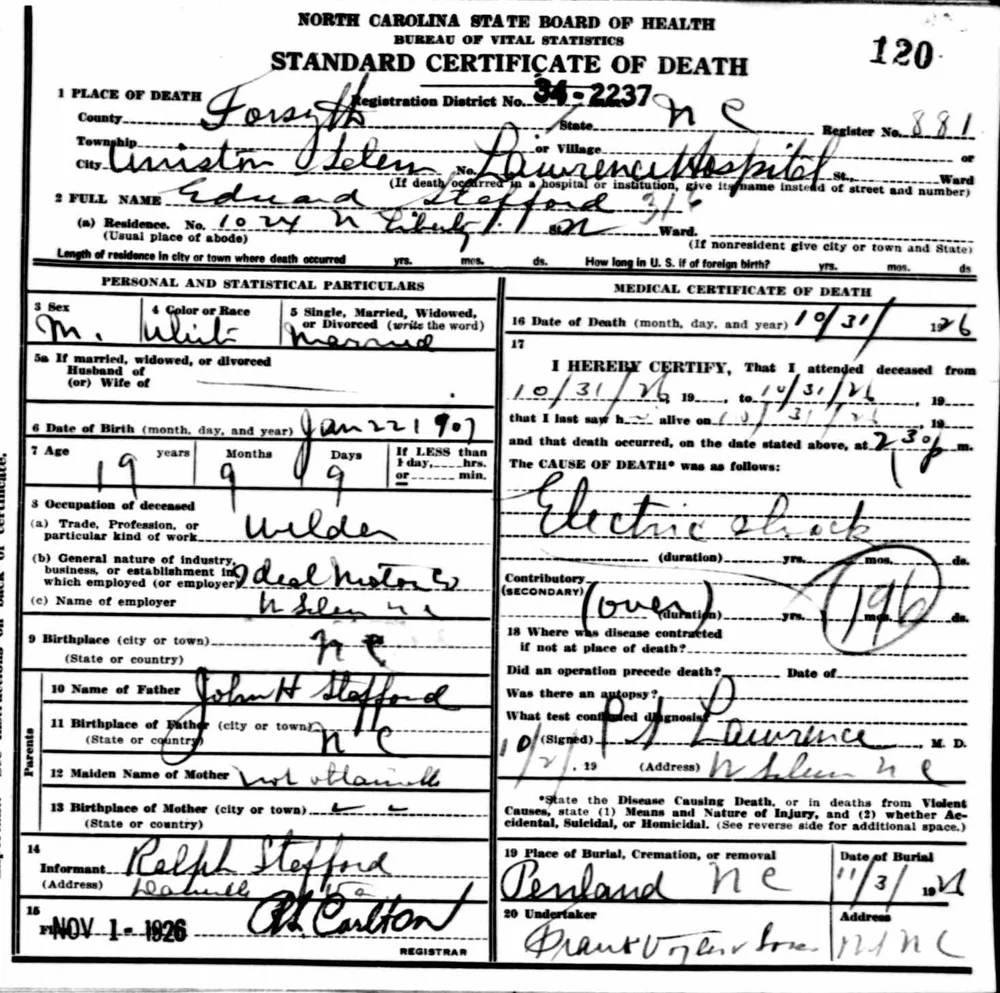 NORTH CAROLINA STATE BOARD OF HEALTH
BUREAU OF VITAL STATISTICS
STANDARD CERTIFICATE OF DEATH
120
1 PLACE OF DEATH
Registration District No. 34-2237
County Forsyth State N C Register No. 881
Township or Village or
City Winston Salem No. Lawrence Hospital St., Ward
(If death occurred in a hospital or institution, give its name instead of street and number)
2 FULL NAME Edward Stafford 316
(a) Residence. No. 1024 N Liberty St. Ward.
(Usual place of abode) (If nonresident give city or town and State)
Length of residence in city or town where death occurred yrs. mos. ds. How long in U. S. if of foreign birth? yrs. mos. ds
PERSONAL AND STATISTICAL PARTICULARS
3 Sex 4 Color or Race 5 Single, Married, Widowed, or Divorced (write the word)
M. White Married
5a If married, widowed, or divorced
Husband of
(or) Wife of
6 Date of Birth (month, day, and year) Jan 22 1907
7 Age years Months Days If LESS than
1 day, hrs.
or min.
19 9 9
8 Occupation of deceased
(a) Trade, Profession, or
particular kind of work Wilder
(b) General nature of industry,
business, or establishment in
which employed (or employer) Ideal Motor Co
(c) Name of employer W Salem N C
9 Birthplace (city or town)
(State or country) N C
Parents
10 Name of Father John H Stafford
11 Birthplace of Father (city or town)
(State or country) N C
12 Maiden Name of Mother not obtainable
13 Birthplace of Mother (city or town)
(State or country)
14
Informant Ralph Stafford
(Address) Danville Va
15
NOV 1 - 1926 Carlton
REGISTRAR
MEDICAL CERTIFICATE OF DEATH
16 Date of Death (month, day, and year) 10/31/ 1926
17
I HEREBY CERTIFY, That I attended deceased from
10/31/26, 19 , to 10/31/26, 19
that I last saw h alive on 10/31/26, 19
and that death occurred, on the date stated above, at 230 p m.
The CAUSE OF DEATH* was as follows:
Electric shock
(duration) yrs. mos. ds.
Contributory
(SECONDARY) (over)
(duration) yrs. mos. ds.
196
18 Where was disease contracted
if not at place of death?
Did an operation precede death? Date of
Was there an autopsy?
What test confirmed diagnosis?
(Signed) Lawrence, M. D.
10/ , 19 (Address) W Salem N C
*State the Disease Causing Death, or in deaths from Violent
Causes, state (1) Means and Nature of Injury, and (2) whether Ac-
cidental, Suicidal, or Homicidal. (See reverse side for additional space.)
19 Place of Burial, Cremation, or removal Date of Burial
Penland N C 11/3/ 1926
20 Undertaker Address
Frank Vogler Sons N C